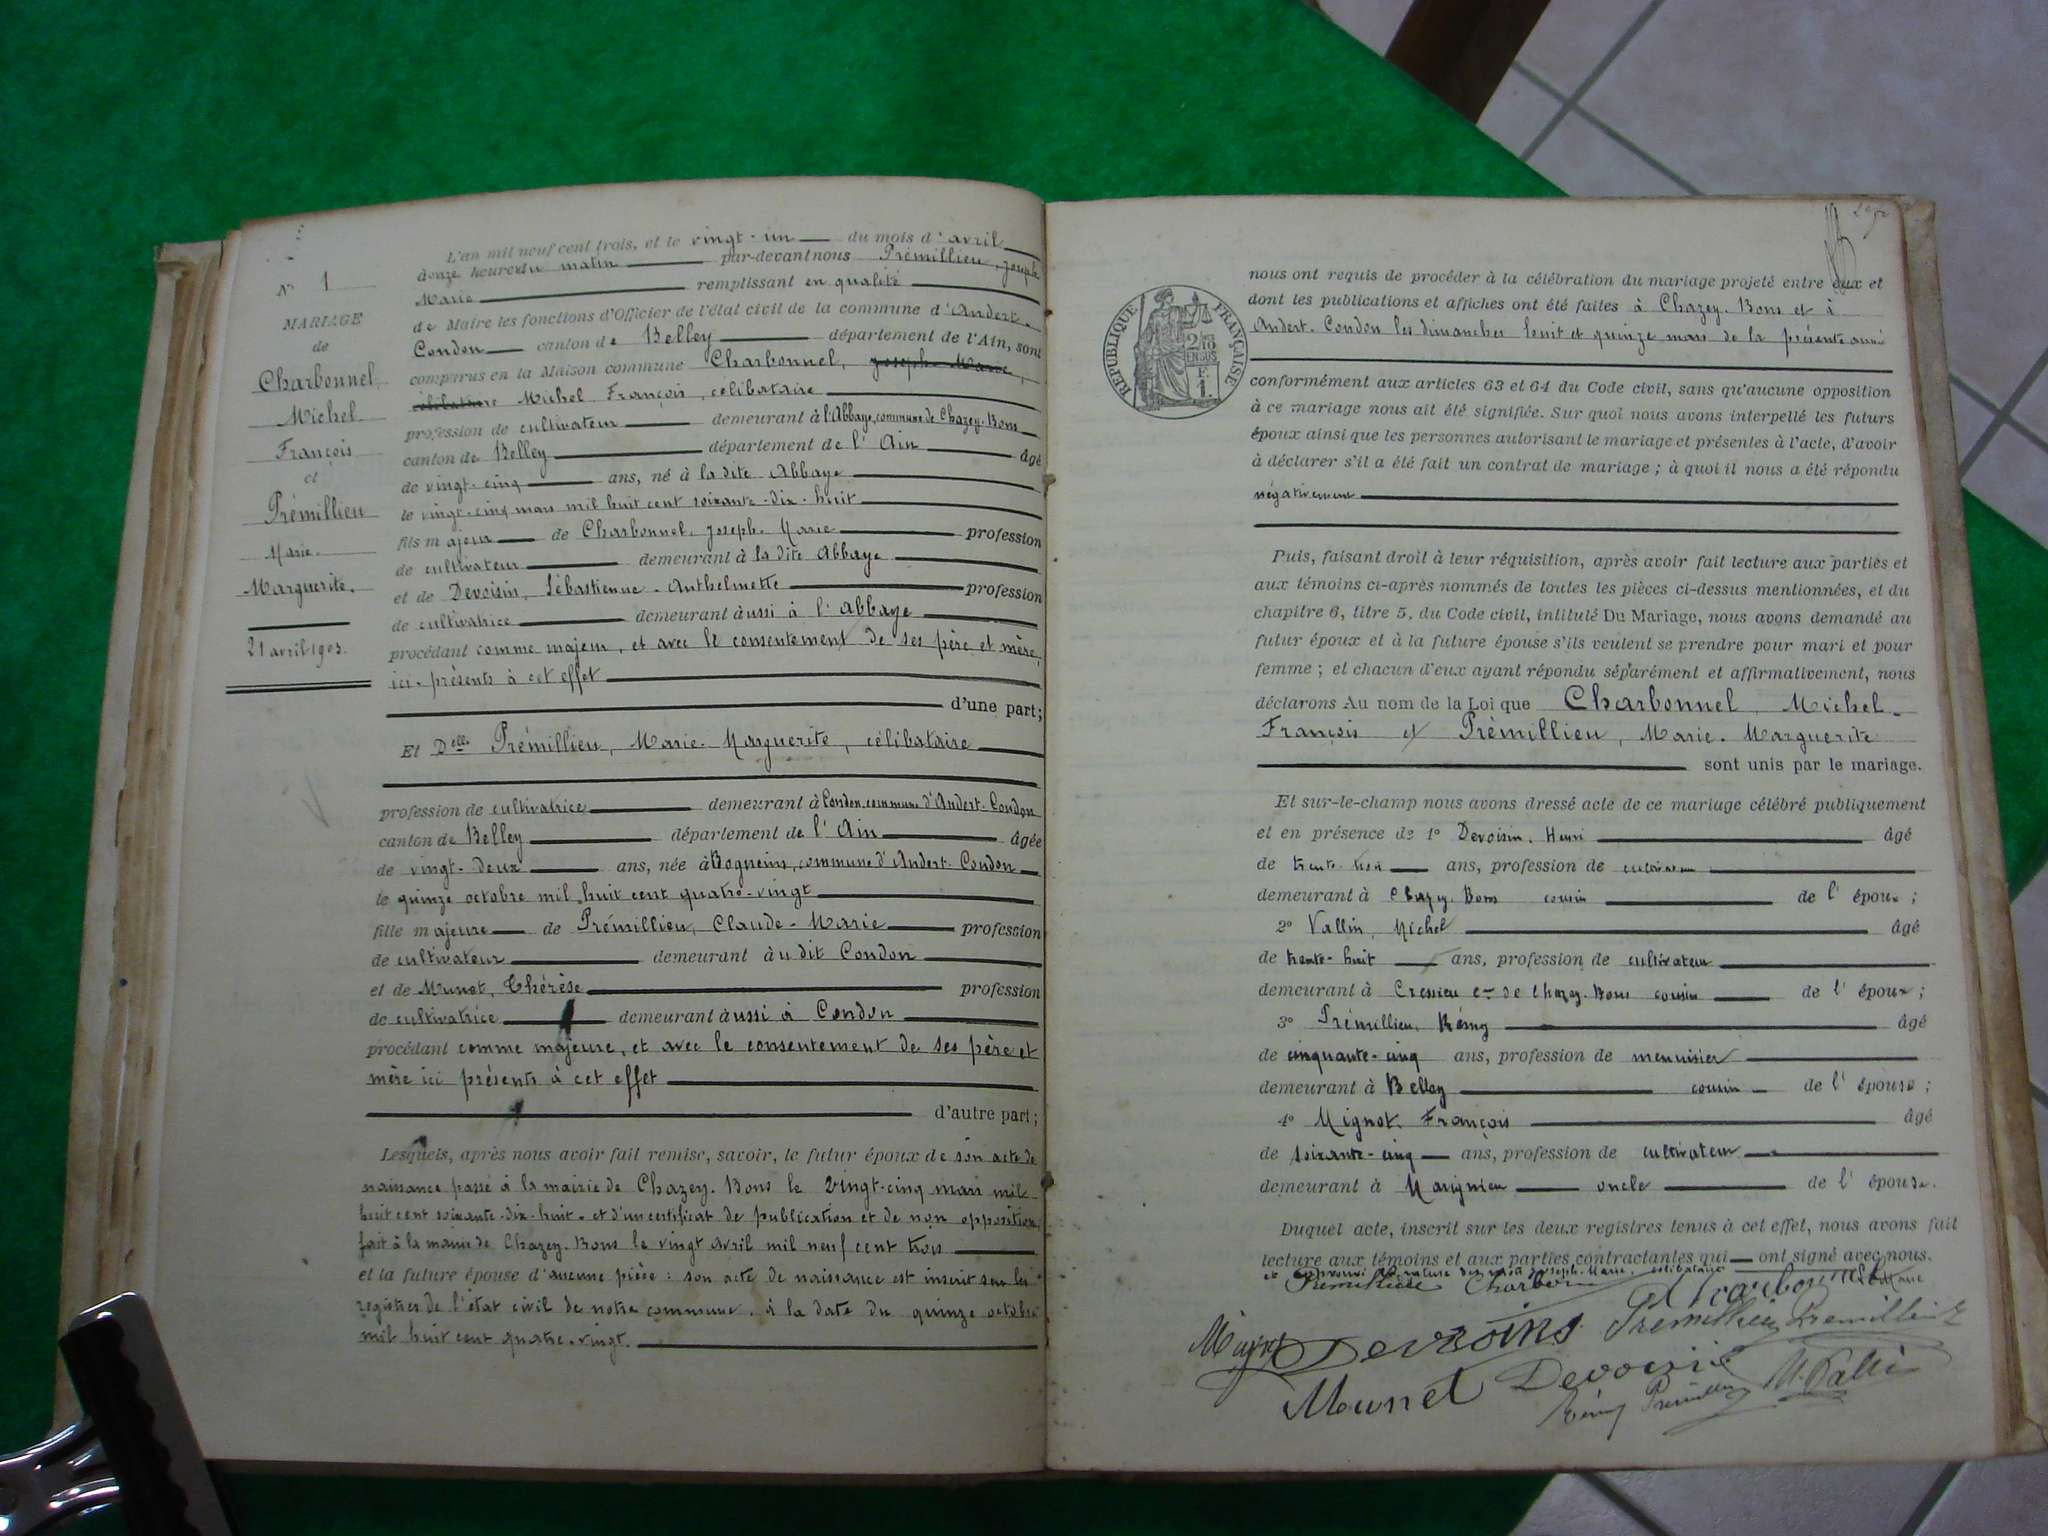 N° 1
MARIAGE
de
Charbonnel
Michel
François
et
Prémillieu
Marie-
Marguerite.
21 avril 1903.
L'an mil neuf cent trois, et le vingt-un du mois d'avril
à onze heures du matin par-devant nous Prémillieu, Joseph
Marie remplissant en qualité
de Maire les fonctions d'Officier de l'état civil de la commune d'Andert-
Condon canton de Belley département de l'Ain, sont
comparus en la Maison commune Charbonnel, Joseph-Marie,
célibataire Michel François, célibataire
profession de cultivateur demeurant à l'Abbaye, commune de Chazey-Bons
canton de Belley département de l'Ain âgé
de vingt-cinq ans, né à la dite Abbaye
le vingt-cinq mars mil huit cent soixante-dix-huit
fils majeur de Charbonnel, Joseph-Marie profession
de cultivateur demeurant à la dite Abbaye
et de Devoisin, Sébastienne-Anthelmette profession
de cultivatrice demeurant aussi à l'Abbaye
procédant comme majeur, et avec le consentement de ses père et mère,
ici présents à cet effet
d'une part;
Et Delle Prémillieu, Marie-Marguerite, célibataire
profession de cultivatrice demeurant à Condon, commune d'Andert-Condon
canton de Belley département de l'Ain âgée
de vingt-deux ans, née à Bogneins, commune d'Andert-Condon
le quinze octobre mil huit cent quatre-vingt
fille majeure de Prémillieu, Claude-Marie profession
de cultivateur demeurant au dit Condon
et de Munet, Thérèse profession
de cultivatrice demeurant aussi à Condon
procédant comme majeure, et avec le consentement de ses père et
mère ici présents à cet effet
d'autre part;
Lesquels, après nous avoir fait remise, savoir, le futur époux de son acte de
naissance passé à la mairie de Chazey-Bons le vingt-cinq mars mil
huit cent soixante-dix-huit et d'un certificat de publication et de non opposition
fait à la mairie de Chazey-Bons le vingt avril mil neuf cent trois
et la future épouse d'aucune pièce : son acte de naissance est inscrit sur les
registres de l'état civil de notre commune, à la date du quinze octobre
mil huit cent quatre-vingt.
RÉPUBLIQUE FRANÇAISE
2/10
EN SUS
F.
1.
nous ont requis de procéder à la célébration du mariage projeté entre eux et
dont les publications et affiches ont été faites à Chazey-Bons et à
Andert-Condon les dimanches huit et quinze mars de la présente année
conformément aux articles 63 et 64 du Code civil, sans qu'aucune opposition
à ce mariage nous ait été signifiée. Sur quoi nous avons interpellé les futurs
époux ainsi que les personnes autorisant le mariage et présentes à l'acte, d'avoir
à déclarer s'il a été fait un contrat de mariage ; à quoi il nous a été répondu
négativement
Puis, faisant droit à leur réquisition, après avoir fait lecture aux parties et
aux témoins ci-après nommés de toutes les pièces ci-dessus mentionnées, et du
chapitre 6, titre 5, du Code civil, intitulé Du Mariage, nous avons demandé au
futur époux et à la future épouse s'ils veulent se prendre pour mari et pour
femme ; et chacun d'eux ayant répondu séparément et affirmativement, nous
déclarons Au nom de la Loi que Charbonnel Michel-
François et Prémillieu, Marie-Marguerite
sont unis par le mariage.
Et sur-le-champ nous avons dressé acte de ce mariage célébré publiquement
et en présence de 1° Devoisin, Henri âgé
de trente-trois ans, profession de cultivateur
demeurant à Chazey-Bons cousin de l'époux ;
2° Vallin, Michel âgé
de trente-huit ans, profession de cultivateur
demeurant à Cressieu cne de Chazey-Bons cousin de l'époux ;
3° Prémillieu, Rémy âgé
de cinquante-cinq ans, profession de menuisier
demeurant à Belley cousin de l'épouse ;
4° Mignot, François âgé
de soixante-cinq ans, profession de cultivateur
demeurant à Marignieu oncle de l'épouse.
Duquel acte, inscrit sur les deux registres tenus à cet effet, nous avons fait
lecture aux témoins et aux parties contractantes qui ont signé avec nous.
et approuvé la rature des mots Joseph-Marie, célibataire
Charbonnel
Devoisins
Prémillieu Prémillieu
Munet Devoisin
Rémy Prémillieu